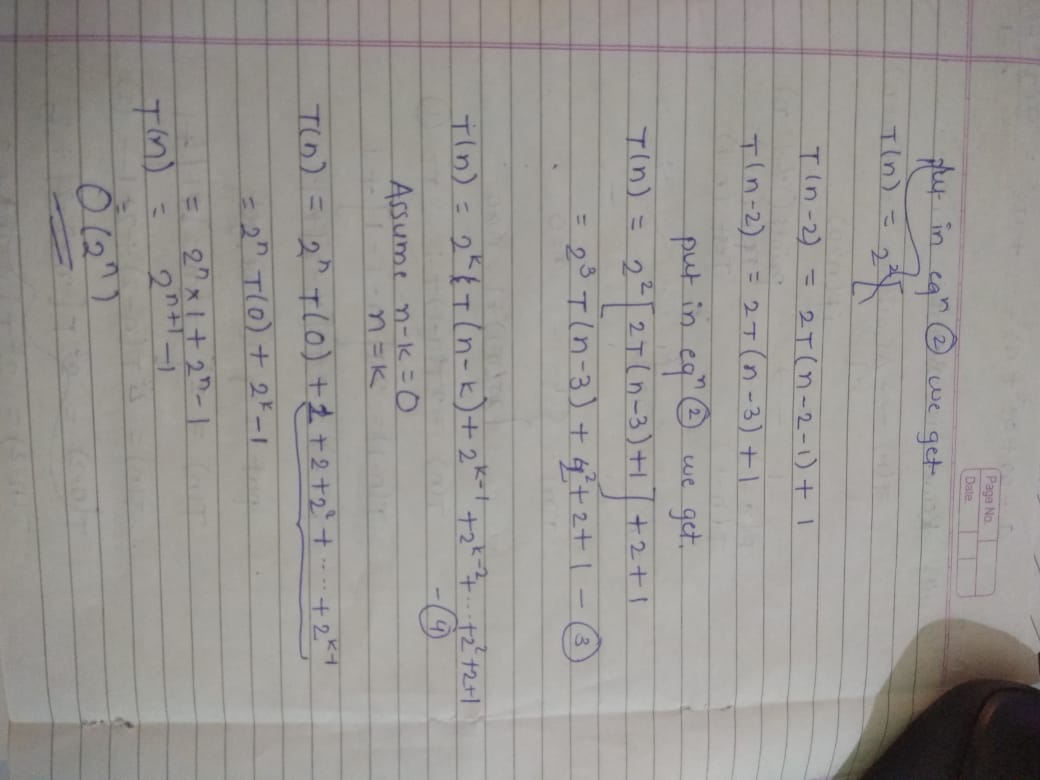 Page No.
Date
put in eqⁿ ② we get
T(n) = 2²[
T(n-2) = 2T(n-2-1) + 1
T(n-2) = 2T(n-3) + 1
put in eqⁿ ② we get.
T(n) = 2² [2T(n-3)+1] + 2 + 1
= 2³ T(n-3) + 2² + 2 + 1 - ③
T(n) = 2ᵏ T(n-k) + 2ᵏ⁻¹ + 2ᵏ⁻² + ... + 2² + 2 + 1
- ④
Assume n-k = 0
n = k
T(n) = 2ⁿ T(0) + 1 + 2 + 2² + ..... + 2ᵏ⁻¹
= 2ⁿ T(0) + 2ᵏ - 1
= 2ⁿ × 1 + 2ⁿ - 1
T(n) = 2ⁿ⁺¹ - 1
= O(2ⁿ)